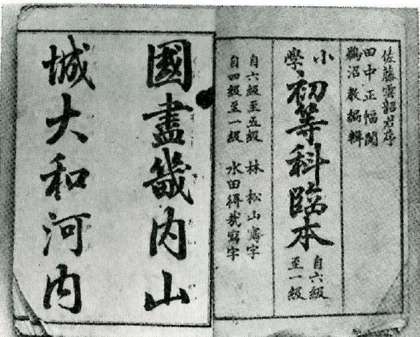 佐藤雲韶君序
田中正幅閲
鵜沼敷編輯
小學初等科臨本 自六級至一級
自六級至五級 林 松山寫字
自四級至一級 水田得哉寫字
國盡畿内山
城大和河内